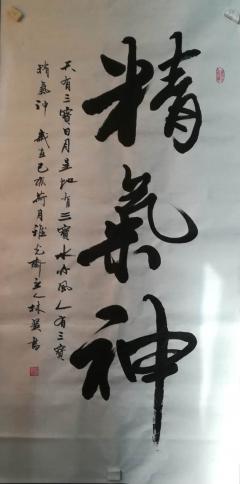 精氣神
天有三寶日月星地有三寶水火風人有三寶
精氣神 歲在己亥荷月雅光齋主人林